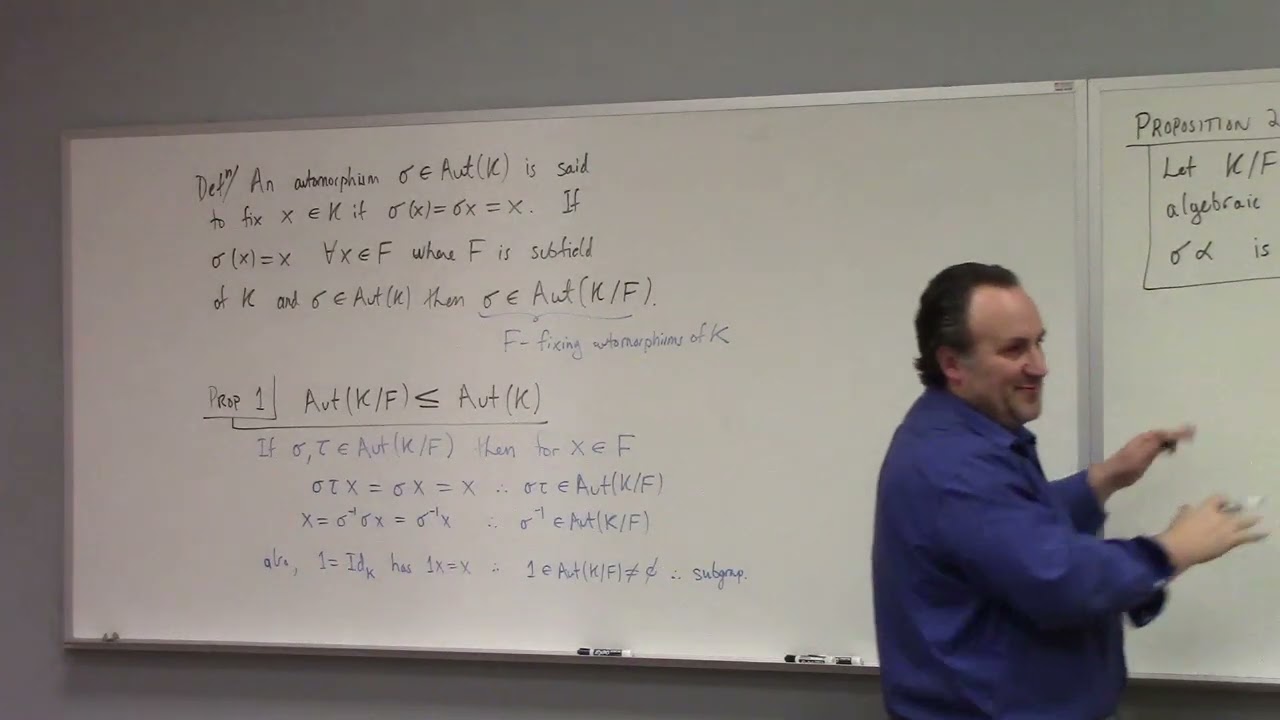 Defⁿ/ An automorphism σ ∈ Aut(K) is said
to fix x ∈ K if σ(x) = σx = x. If
σ(x) = x ∀x ∈ F where F is subfield
of K and σ ∈ Aut(K) then σ ∈ Aut(K/F).
F - fixing automorphisms of K
PROP 1 Aut(K/F) ≤ Aut(K)
If σ, τ ∈ Aut(K/F) then for x ∈ F
στx = σx = x ∴ στ ∈ Aut(K/F)
x = σ⁻¹σx = σ⁻¹x ∴ σ⁻¹ ∈ Aut(K/F)
also, 1 = Id_K has 1x = x ∴ 1 ∈ Aut(K/F) ≠ ∅ ∴ subgroup.
PROPOSITION 2
Let K/F
algebraic
σα is